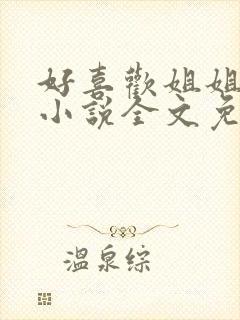 好喜歡姐姐
小說全文免
溫泉綜